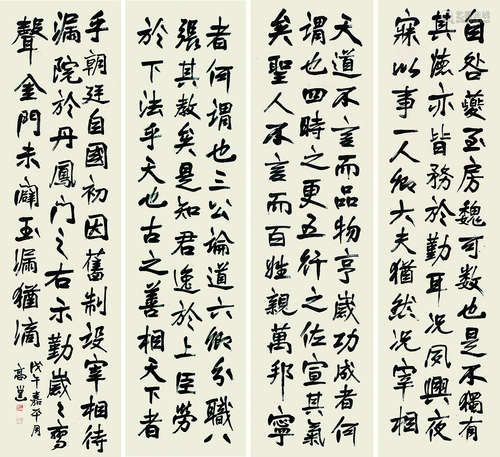 自咎夔至房魏可数也是不獨有
其德亦皆務於勤耳況夙興夜
寐以事一人卿大夫猶然況宰相
天道不言而品物亨歲功成者何
謂也四時之更五行之佐宣其氣
矣聖人不言而百姓親萬邦寧
者何謂也三公論道六卿分職
張其教矣是知君逸於上臣勞
於下法乎天也古之善相天下者
乎朝廷自國初因舊制設宰相待
漏院於丹鳳門之右示勤歲〻鸞
聲金門未闢玉漏猶滴
戊午嘉平月
高